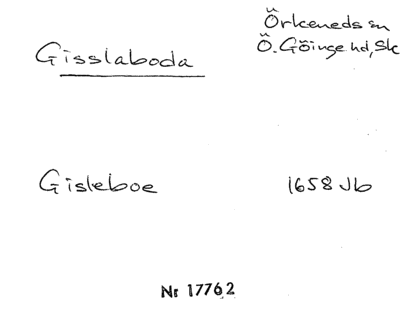 Gisslaboda
Örkeneds sn
Ö. Göinge hd, Sk
Gisleboe 1658 Jb
Nr 17762